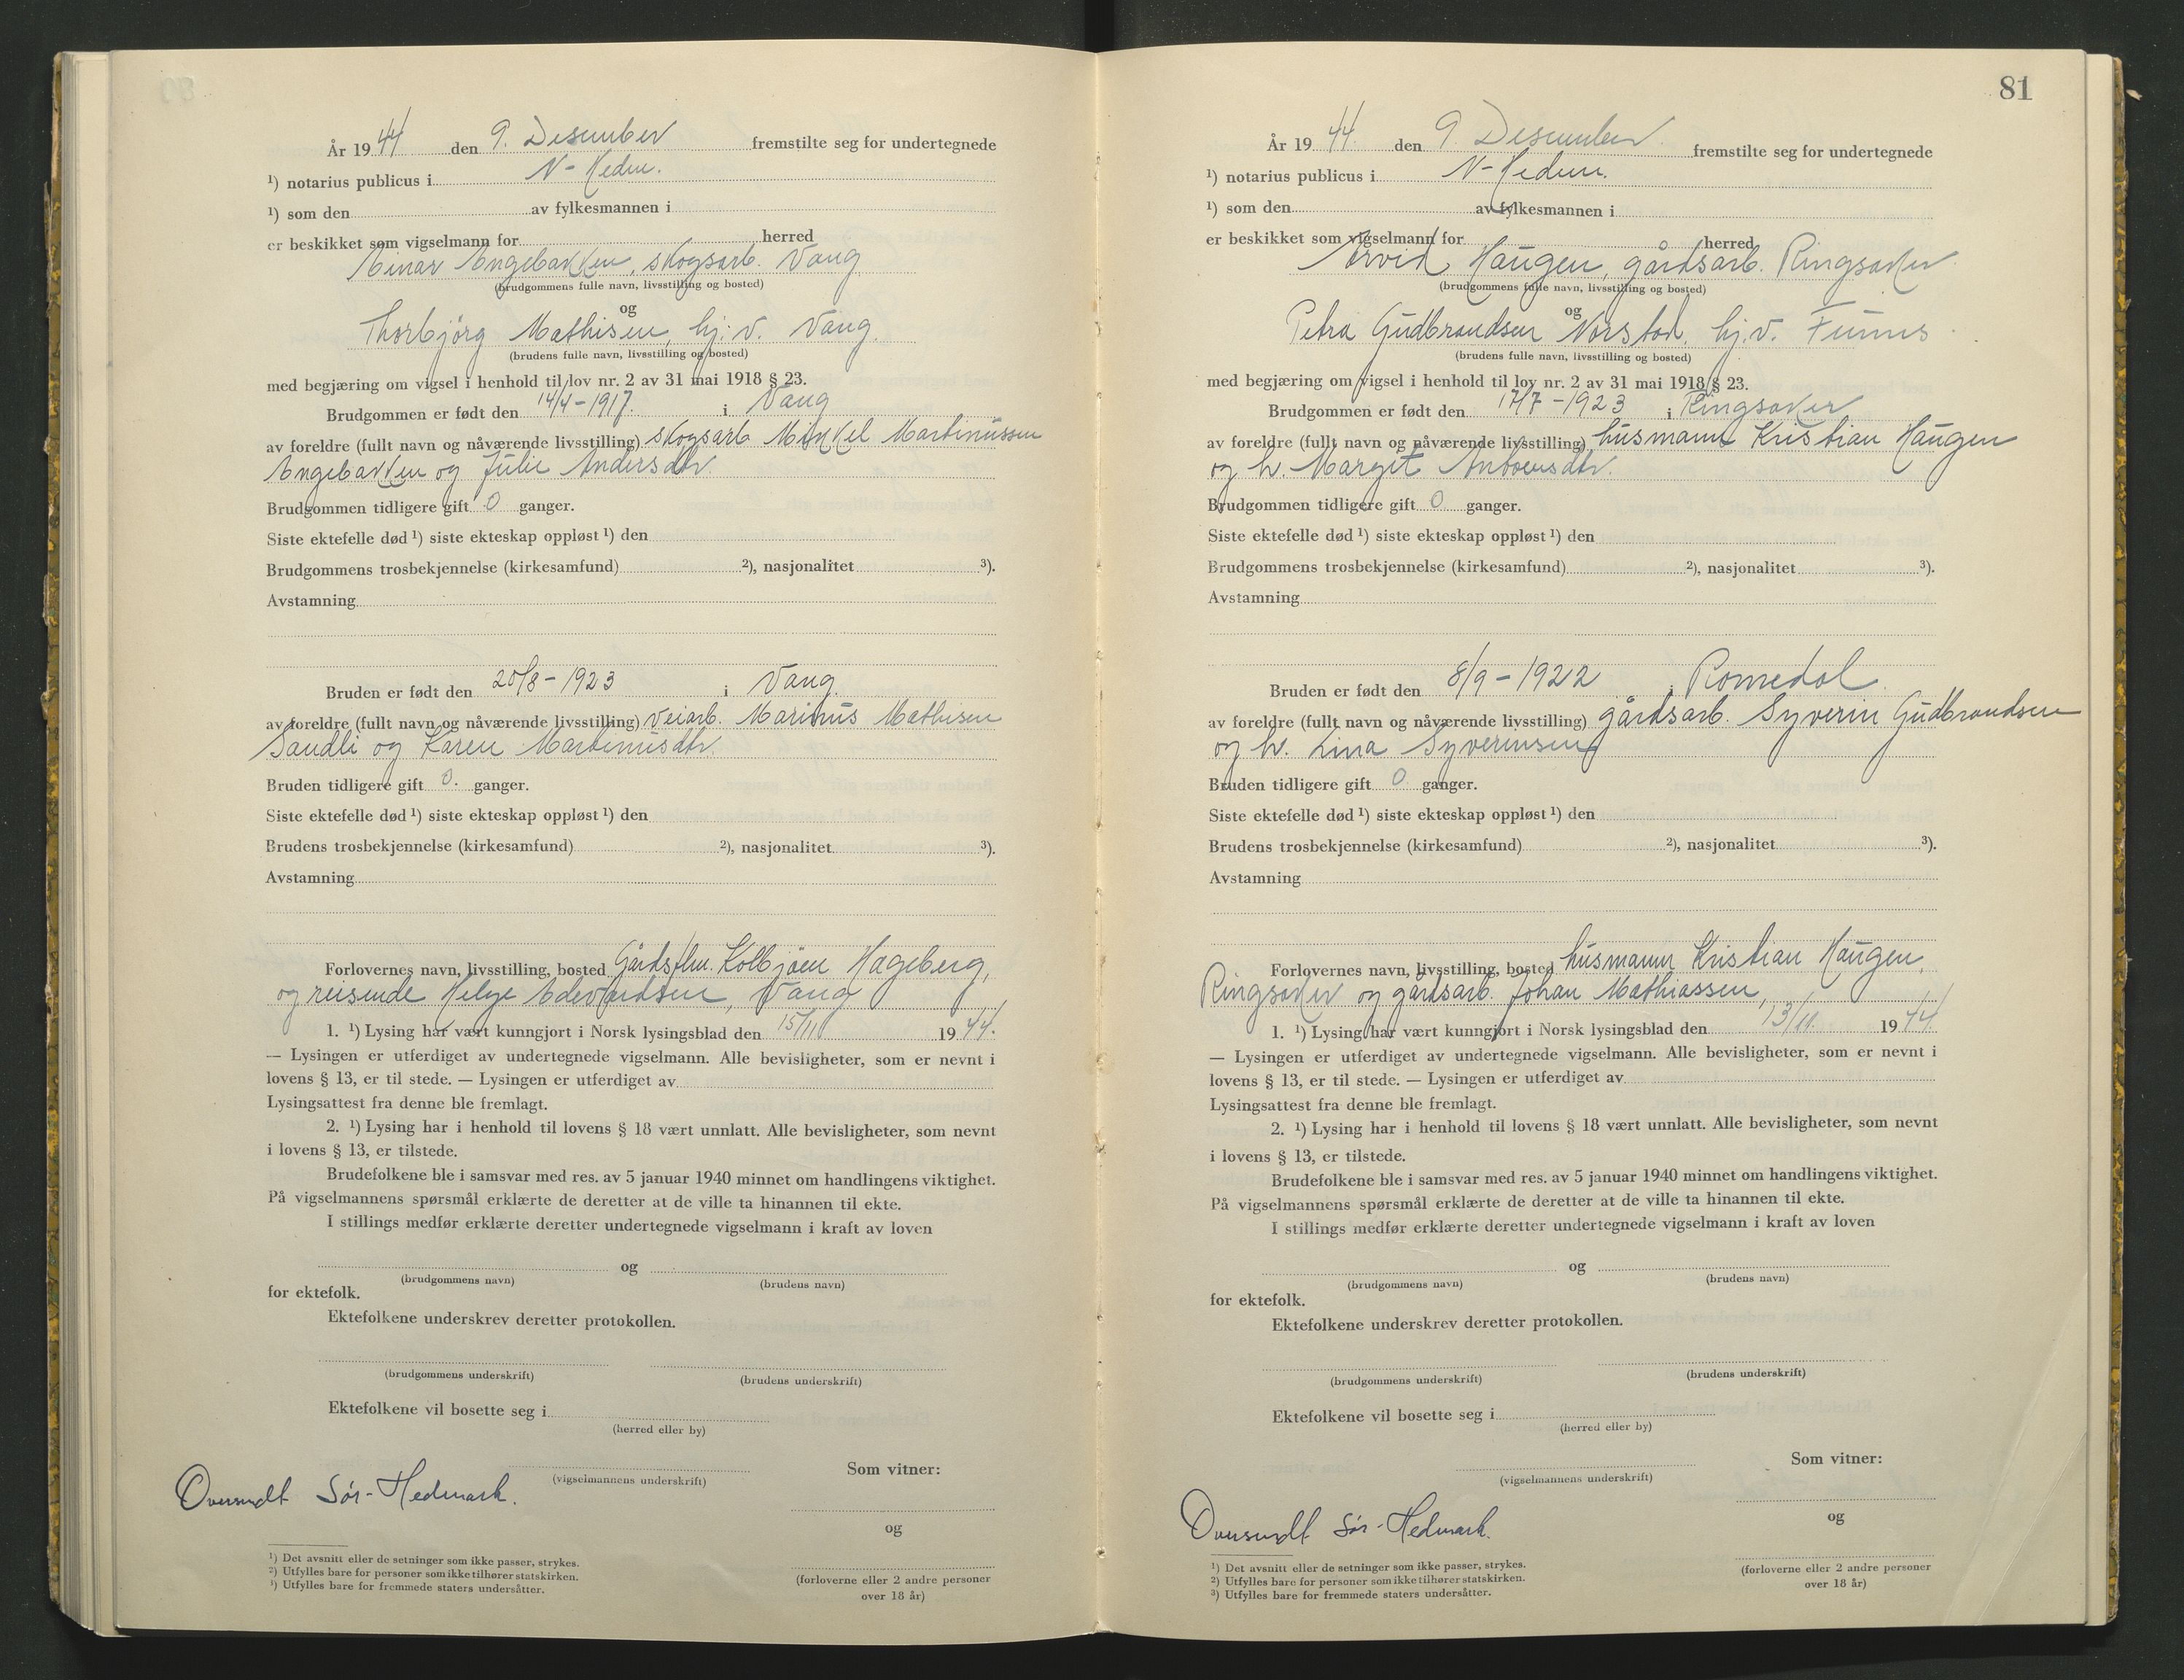 År 1944 den 9. Desember fremstilte seg for undertegnede
¹) notarius publicus i N-Hedm.
¹) som den av fylkesmannen i
er beskikket som vigselmann for herred
Einar Engebakken, skogsarb. Vang
(brudgommens fulle navn, livsstilling og bosted)
og
Thorbjörg Mathisen, hj.v. Vang.
(brudens fulle navn, livsstilling og bosted)
med begjæring om vigsel i henhold til lov nr. 2 av 31 mai 1918 § 23.
Brudgommen er født den 14/4-1917. i Vang
av foreldre (fullt navn og nåværende livsstilling) skogsarb Mikkel Martinussen
Engebakken og Julie Andersdtr.
Brudgommen tidligere gift 0 ganger.
Siste ektefelle død ¹) siste ekteskap oppløst ¹) den
Brudgommens trosbekjennelse (kirkesamfund) ²), nasjonalitet ³).
Avstamning
Bruden er født den 20/8-1923 i Vang.
av foreldre (fullt navn og nåværende livsstilling) veiarb. Marinus Mathisen
Sandli og Karen Martinusdtr.
Bruden tidligere gift 0. ganger.
Siste ektefelle død ¹) siste ekteskap oppløst ¹) den
Brudens trosbekjennelse (kirkesamfund) ²), nasjonalitet ³).
Avstamning
Forlovernes navn, livsstilling, bosted Kolbjörn Hageberg,
og reisende Helge Edevardsen, Vang
1. ¹) Lysing har vært kunngjort i Norsk lysingsblad den 15/11 1944.
— Lysingen er utferdiget av undertegnede vigselmann. Alle bevisligheter, som er nevnt i
lovens § 13, er til stede. — Lysingen er utferdiget av
Lysingsattest fra denne ble fremlagt.
2. ¹) Lysing har i henhold til lovens § 18 vært unnlatt. Alle bevisligheter, som nevnt
i lovens § 13, er tilstede.
Brudefolkene ble i samsvar med res. av 5 januar 1940 minnet om handlingens viktighet.
På vigselmannens spørsmål erklærte de deretter at de ville ta hinannen til ekte.
I stillings medfør erklærte deretter undertegnede vigselmann i kraft av loven
og
(brudgommens navn) (brudens navn)
for ektefolk.
Ektefolkene underskrev deretter protokollen.
(brudgommens underskrift) (brudens underskrift)
Ektefolkene vil bosette seg i
(herred eller by)
(vigselmannens underskrift)
Som vitner:
Oversendt Sør-Hedmark.
og
(forloverne eller 2 andre personer
over 18 år)
¹) Det avsnitt eller de setninger som ikke passer, strykes.
²) Utfylles bare for personer som ikke tilhører statskirken.
³) Utfylles bare for fremmede staters undersåtter.
81
År 1944. den 9 Desember fremstilte seg for undertegnede
¹) notarius publicus i N-Hedm.
¹) som den av fylkesmannen i
er beskikket som vigselmann for herred
Arvid Haugen, gårdsarb. Ringsaker
(brudgommens fulle navn, livsstilling og bosted)
og
Petra Gudbrandsen Norstad, hj.v. Furnes
(brudens fulle navn, livsstilling og bosted)
med begjæring om vigsel i henhold til lov nr. 2 av 31 mai 1918 § 23.
Brudgommen er født den 17/7-1923 i Ringsaker
av foreldre (fullt navn og nåværende livsstilling) husmann Kristian Haugen
og h. Margit
Brudgommen tidligere gift 0 ganger.
Siste ektefelle død ¹) siste ekteskap oppløst ¹) den
Brudgommens trosbekjennelse (kirkesamfund) ²), nasjonalitet ³).
Avstamning
Bruden er født den 8/9-1922 i Romedal
av foreldre (fullt navn og nåværende livsstilling) gårdsarb. Syverin Gudbrandsen
og h. Lina Syverinsen
Bruden tidligere gift 0 ganger.
Siste ektefelle død ¹) siste ekteskap oppløst ¹) den
Brudens trosbekjennelse (kirkesamfund) ²), nasjonalitet ³).
Avstamning
Forlovernes navn, livsstilling, bosted husmann Kristian Haugen,
Ringsaker og gårdsarb. Johan Mathiassen,
1. ¹) Lysing har vært kunngjort i Norsk lysingsblad den 13/11. 1944
— Lysingen er utferdiget av undertegnede vigselmann. Alle bevisligheter, som er nevnt i
lovens § 13, er til stede. — Lysingen er utferdiget av
Lysingsattest fra denne ble fremlagt.
2. ¹) Lysing har i henhold til lovens § 18 vært unnlatt. Alle bevisligheter, som nevnt
i lovens § 13, er tilstede.
Brudefolkene ble i samsvar med res. av 5 januar 1940 minnet om handlingens viktighet.
På vigselmannens spørsmål erklærte de deretter at de ville ta hinannen til ekte.
I stillings medfør erklærte deretter undertegnede vigselmann i kraft av loven
og
(brudgommens navn) (brudens navn)
for ektefolk.
Ektefolkene underskrev deretter protokollen.
(brudgommens underskrift) (brudens underskrift)
Ektefolkene vil bosette seg i
(herred eller by)
Som vitner:
(vigselmannens underskrift)
Oversendt Sør-Hedmark.
og
(forloverne eller 2 andre personer
over 18 år)
¹) Det avsnitt eller de setninger som ikke passer, strykes.
²) Utfylles bare for personer som ikke tilhører statskirken.
³) Utfylles bare for fremmede staters undersåtter.